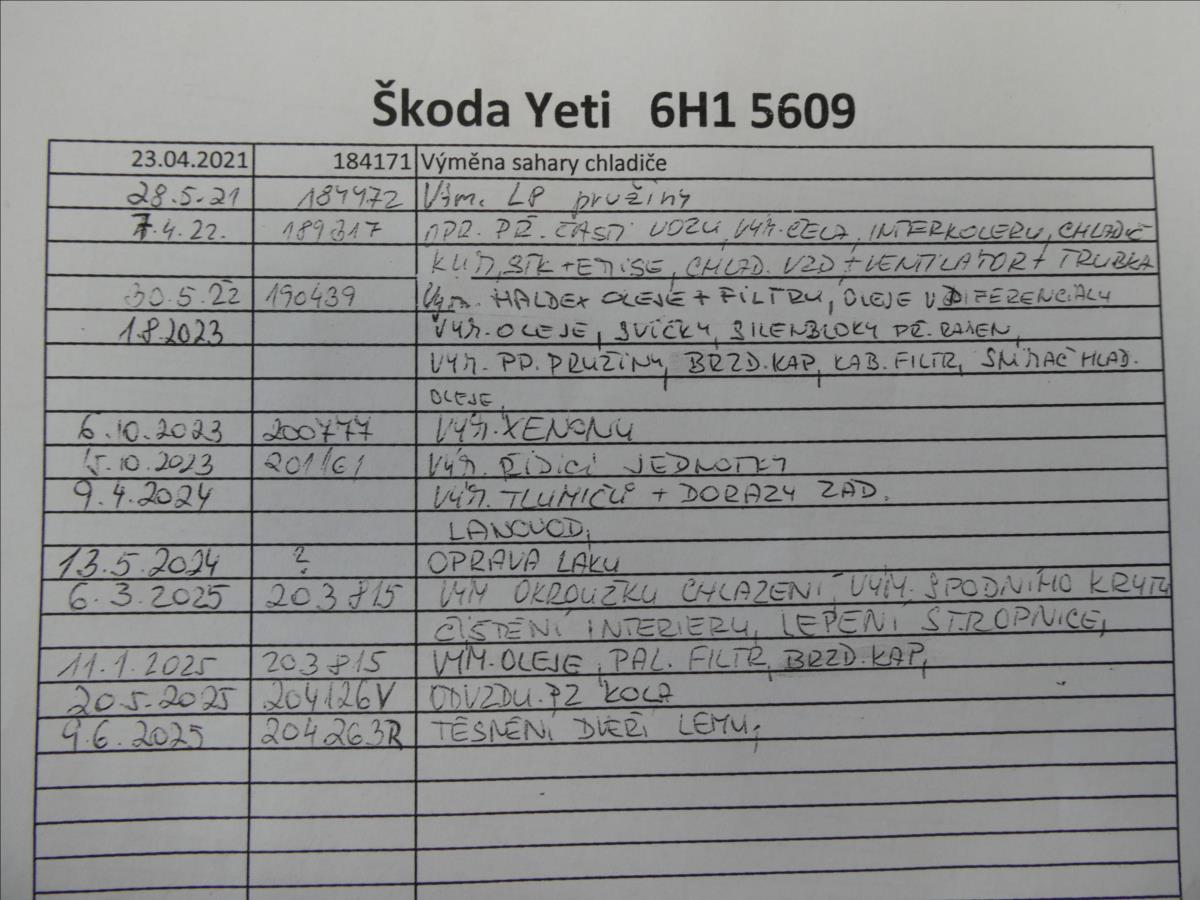 Škoda Yeti 6H1 5609
23.04.2021 184171 Výměna sahary chladiče
28.5-21 184472 Vým. LP pružiny
7.4.22. 189317 OPR. PŘ. ČÁSTI VOZU, VÝM. ČELA, INTERKOLERU, CHLADIČ
KLIM, STK + EMISE, CHLAD. VZD + VENTILÁTOR + TRUBKA
30.5.22 190439 Vým. HALDEX OLEJE + FILTRU, OLEJE V DIFERENCIÁLU
1.8.2023 VÝM. OLEJE, SVÍČKY, SILENBLOKY PŘ. RAMEN,
VÝM. PP. PRUŽINY, BRZD. KAP, KAB. FILTR, SNÍMAČ HLAD.
OLEJE,
6.10.2023 200777 VÝM. XENONU
15.10.2023 201161 VÝM. ŘÍDÍCÍ JEDNOTKY
9.4.2024 VÝM. TLUMIČŮ + DORAZY ZAD.
LANOVOD,
13.5.2024 ? OPRAVA LAKU
6.3.2025 203815 VÝM OKROUŽKU CHLAZENÍ, VÝM. SPODNÍHO KRYTU
ČIŠTĚNÍ INTERIERU, LEPENÍ STROPNICE,
11.1.2025 203815 VÝM. OLEJE, PAL. FILTR, BRZD. KAP,
20.5.2025 204126V ODVZDU. PZ KOLA
9.6.2025 204263R TĚSNĚNÍ DVEŘÍ LEMU,